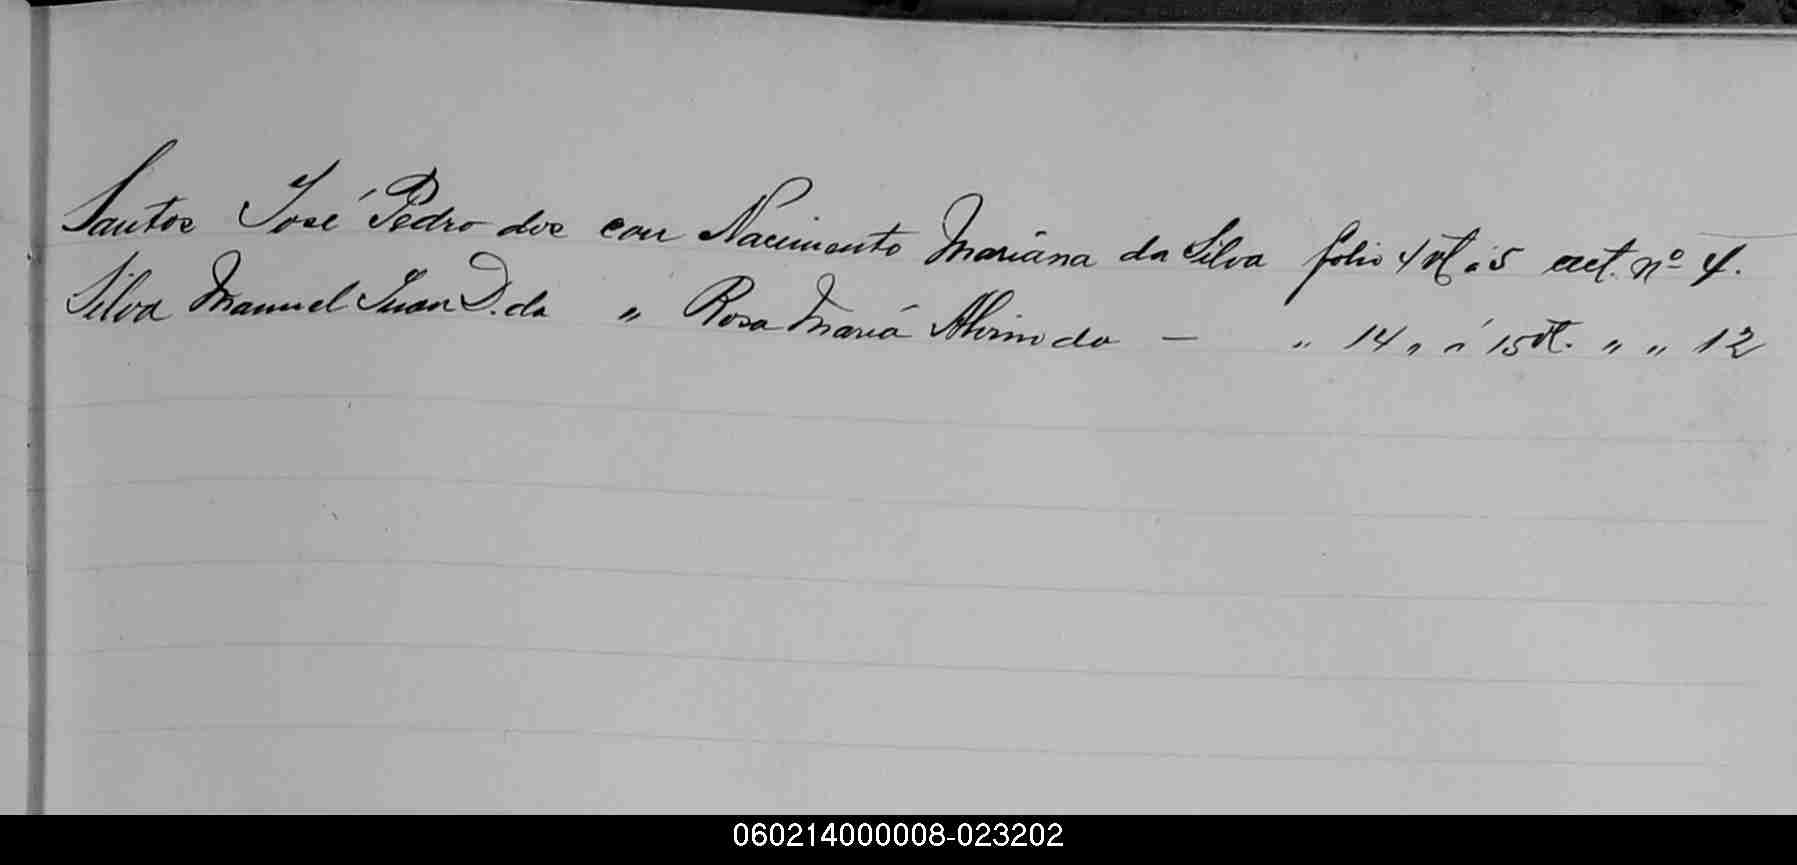 Santos José Pedro dos con Nacimento Mariana da Silva folio 4 vt. á 5 act. nº 4.
Silva Manuel Juan D. da " Rosa María Almeida — " 14 " á 15 vt. " " 12
060214000008-023202